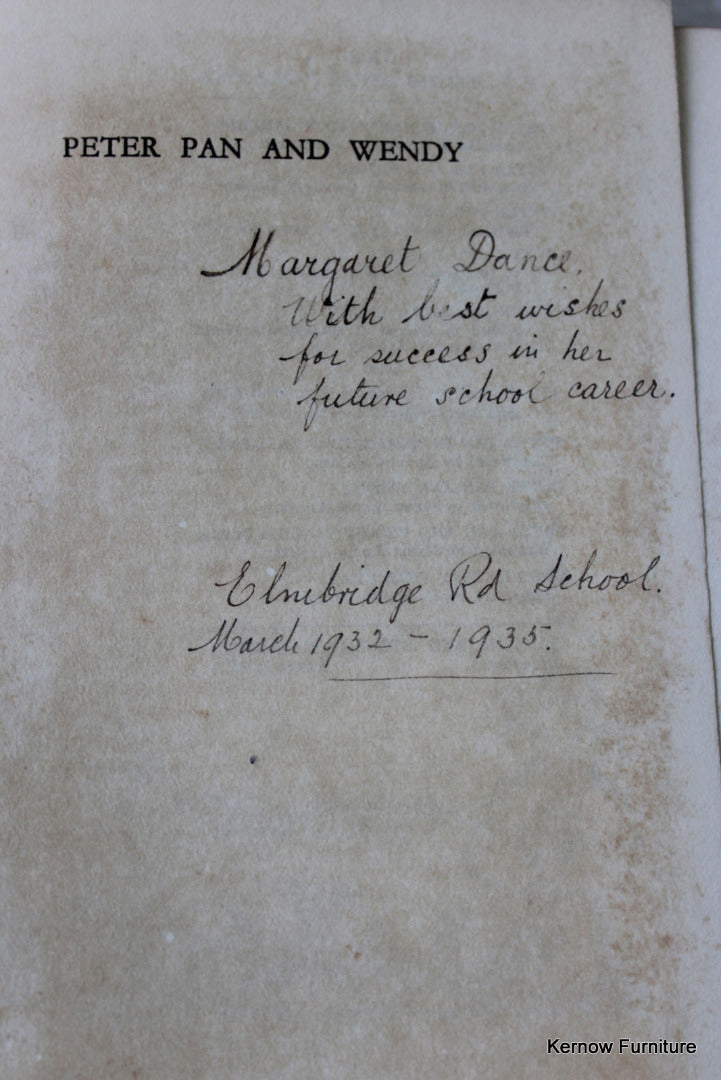 PETER PAN AND WENDY
Margaret Dance.
With best wishes
for success in her
future school career.
Elmbridge Rd School.
March 1932 - 1935.
Kernow Furniture